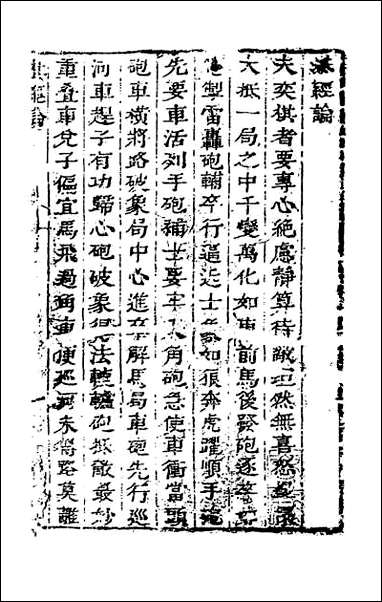 棊經論
夫奕棋者要專心絶慮靜算待敵坦然無喜怒
大抵一局之中千變萬化如車前馬後發砲逐
掣雷轟砲輔卒行逼近士 如狼奔虎躍順手
先要車活列手砲補士要牢 角砲急使車衝當頭
砲車橫將路破象局中心進 解馬局車砲先行巡
河車趕子有功歸心砲破象得法轆轤砲抵敵最妙
重疊車兌子偏宜馬飛過角車便巡河東將路莫離
棊經論